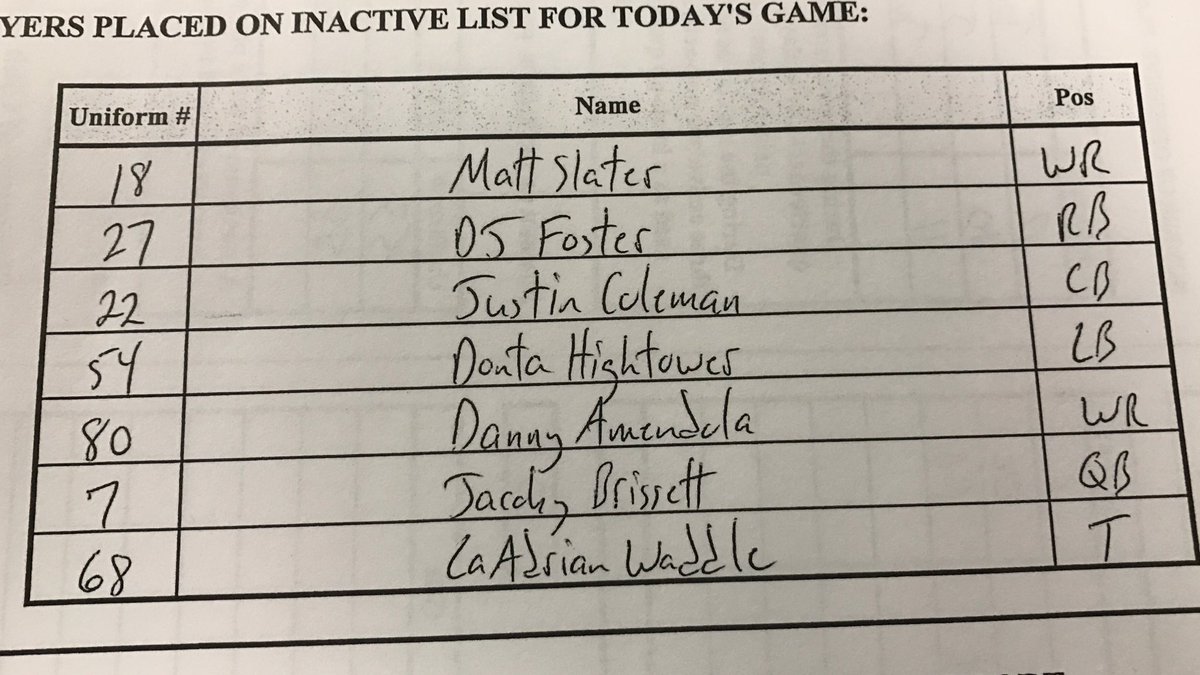 YERS PLACED ON INACTIVE LIST FOR TODAY'S GAME:
Uniform # Name Pos
18 Matt Slater WR
27 DJ Foster RB
22 Justin Coleman CB
54 Donta Hightower LB
80 Danny Amendola WR
7 Jacoby Brissett QB
68 LaAdrian Waddle T